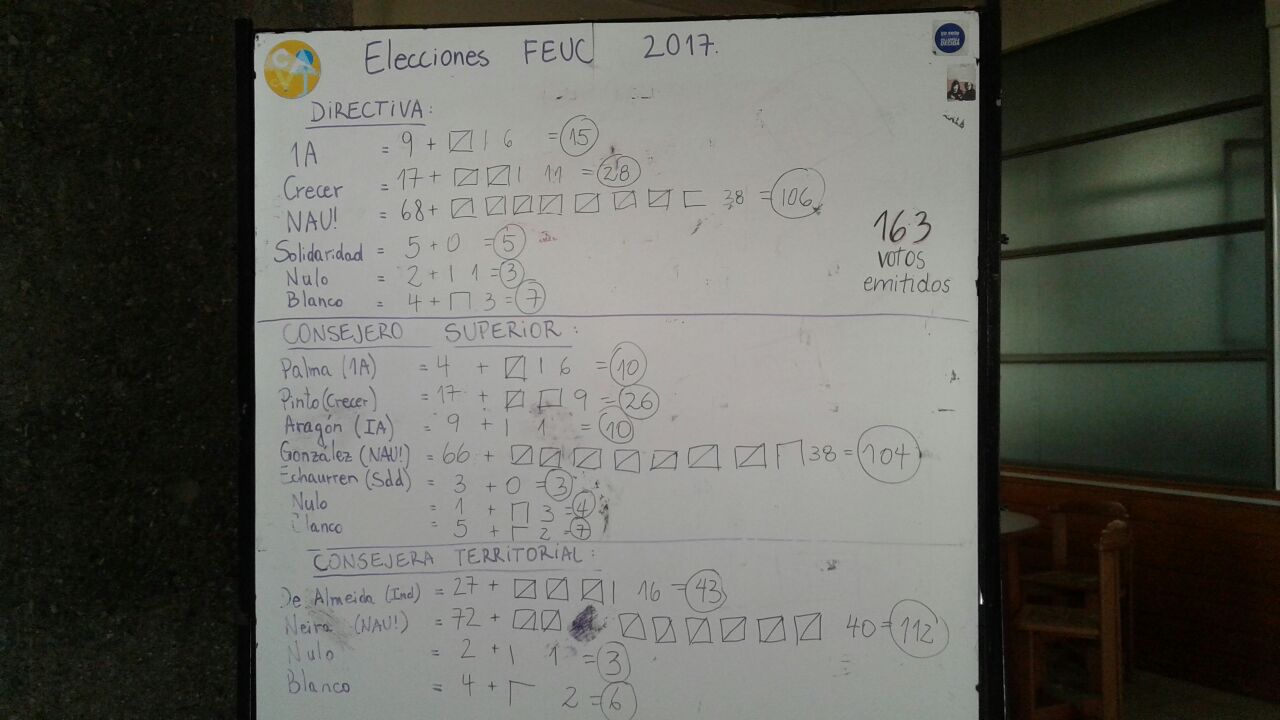 Elecciones FEUC 2017.
DIRECTIVA:
1A = 9 + 6 = 15
Crecer = 17 + 11 = 28
NAU! = 68 + 38 = 106
Solidaridad = 5 + 0 = 5
Nulo = 2 + 1 = 3
Blanco = 4 + 3 = 7
163
votos
emitidos
CONSEJERO SUPERIOR:
Palma (1A) = 4 + 6 = 10
Pinto (Crecer) = 17 + 9 = 26
Aragón (IA) = 9 + 1 = 10
González (NAU!) = 66 + 38 = 104
Echaurren (Sdd) = 3 + 0 = 3
Nulo = 1 + 3 = 4
Blanco = 5 + 2 = 7
CONSEJERA TERRITORIAL:
De Almeida (Ind) = 27 + 16 = 43
Neira (NAU!) = 72 + 40 = 112
Nulo = 2 + 1 = 3
Blanco = 4 + 2 = 6